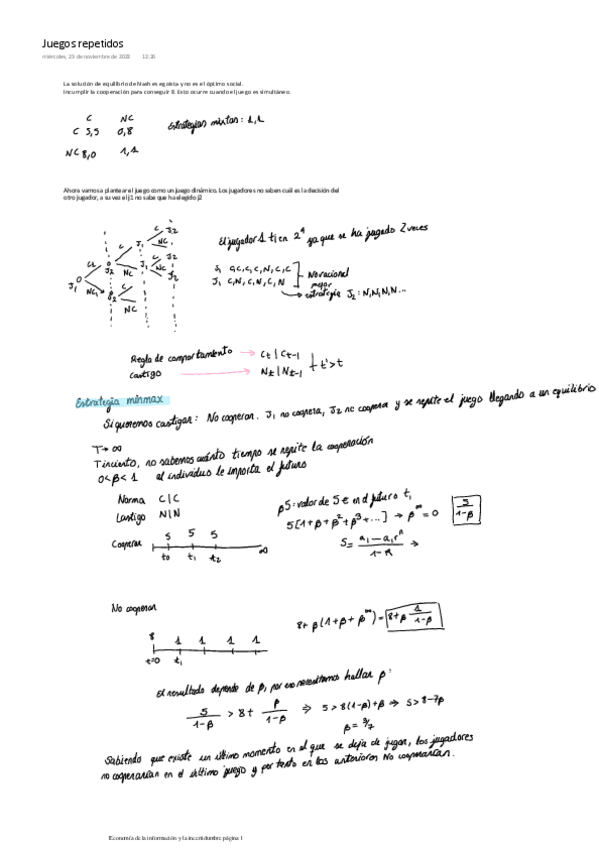 Juegos repetidos
miércoles, 23 de noviembre de 2022 12:26
La solución de equilibrio de Nash es egoísta y no es el óptimo social.
Incumplir la cooperación para conseguir 8. Esto ocurre cuando el juego es simultáneo.
C NC
C 5,5 0,8 Estrategias mixtas: 1,1
NC 8,0 1,1
Ahora vamos a plantear el juego como un juego dinámico. Los jugadores no saben cuál es la decisión del
otro jugador, a su vez el j1 no sabe que ha elegido j2
El jugador 1 tien 2⁴ ya que se ha jugado 2 veces
C J₂
C J₁ NC
J₂ NC J₁ C J₂
J₁ NC J₂
NC J₂ C
NC
C,C,C,N,C,C No racional
J₁ C,N,C,N,C,N mejor
estrategia J₂: N,N,N,N...
Regla de comportamiento → Ct | Ct-1
Castigo → Nt | Nt-1 t'>t
Estrategia minmax
Si queremos castigar: No cooperar. J₁ no coopera, J₂ no coopera y se repite el juego llegando a un equilibrio
T→∞
T incierto, no sabemos cuánto tiempo se repite la cooperación
0<β<1 al individuo le importa el futuro
Norma C|C
Castigo N|N
β5: valor de 5€ en el futuro t₁
5[1+β+β²+β³+...] → β^∞ = 0 5/(1-β)
Cooperar 5 5 5 ∞
t₀ t₁ t₂
S= (a₁-a₁rⁿ)/(1-r) →
No cooperar
8 1 1 1 1
t=0 t₁
8+β(1+β+β^∞)= 8+β 1/(1-β)
El resultado depende de β, por eso necesitamos hallar β:
5/(1-β) > 8+ β/(1-β) ⇒ 5>8(1-β)+β ⇒ 5>8-7β
β= 3/7
Sabiendo que existe un último momento en el que se deja de jugar, los jugadores
no cooperarían en el último juego y por tanto en los anteriores NO cooperarían.
Economía de la información y la incertidumbre página 1